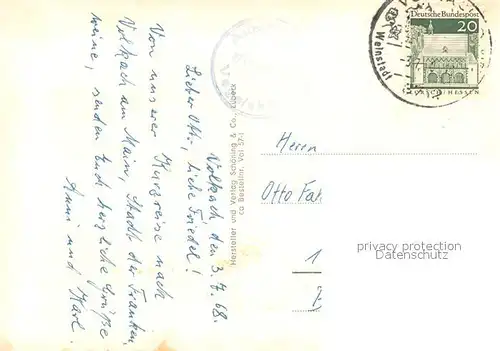 Volkach den 3.7.68.
Lieber Otto, liebe Friedel!
Von unserer Kurzreise nach
Volkach am Main, Stadt der Franken-
weine, senden Euch herzliche Grüße
Anni und Karl.
Hersteller und Verlag Schöning & Co., Lübeck
Bestellnr. Vol
Deutsche Bundespost
20
LORSCH/HESSEN
Herrn
Otto Fa
1
privacy protection
Datenschutz